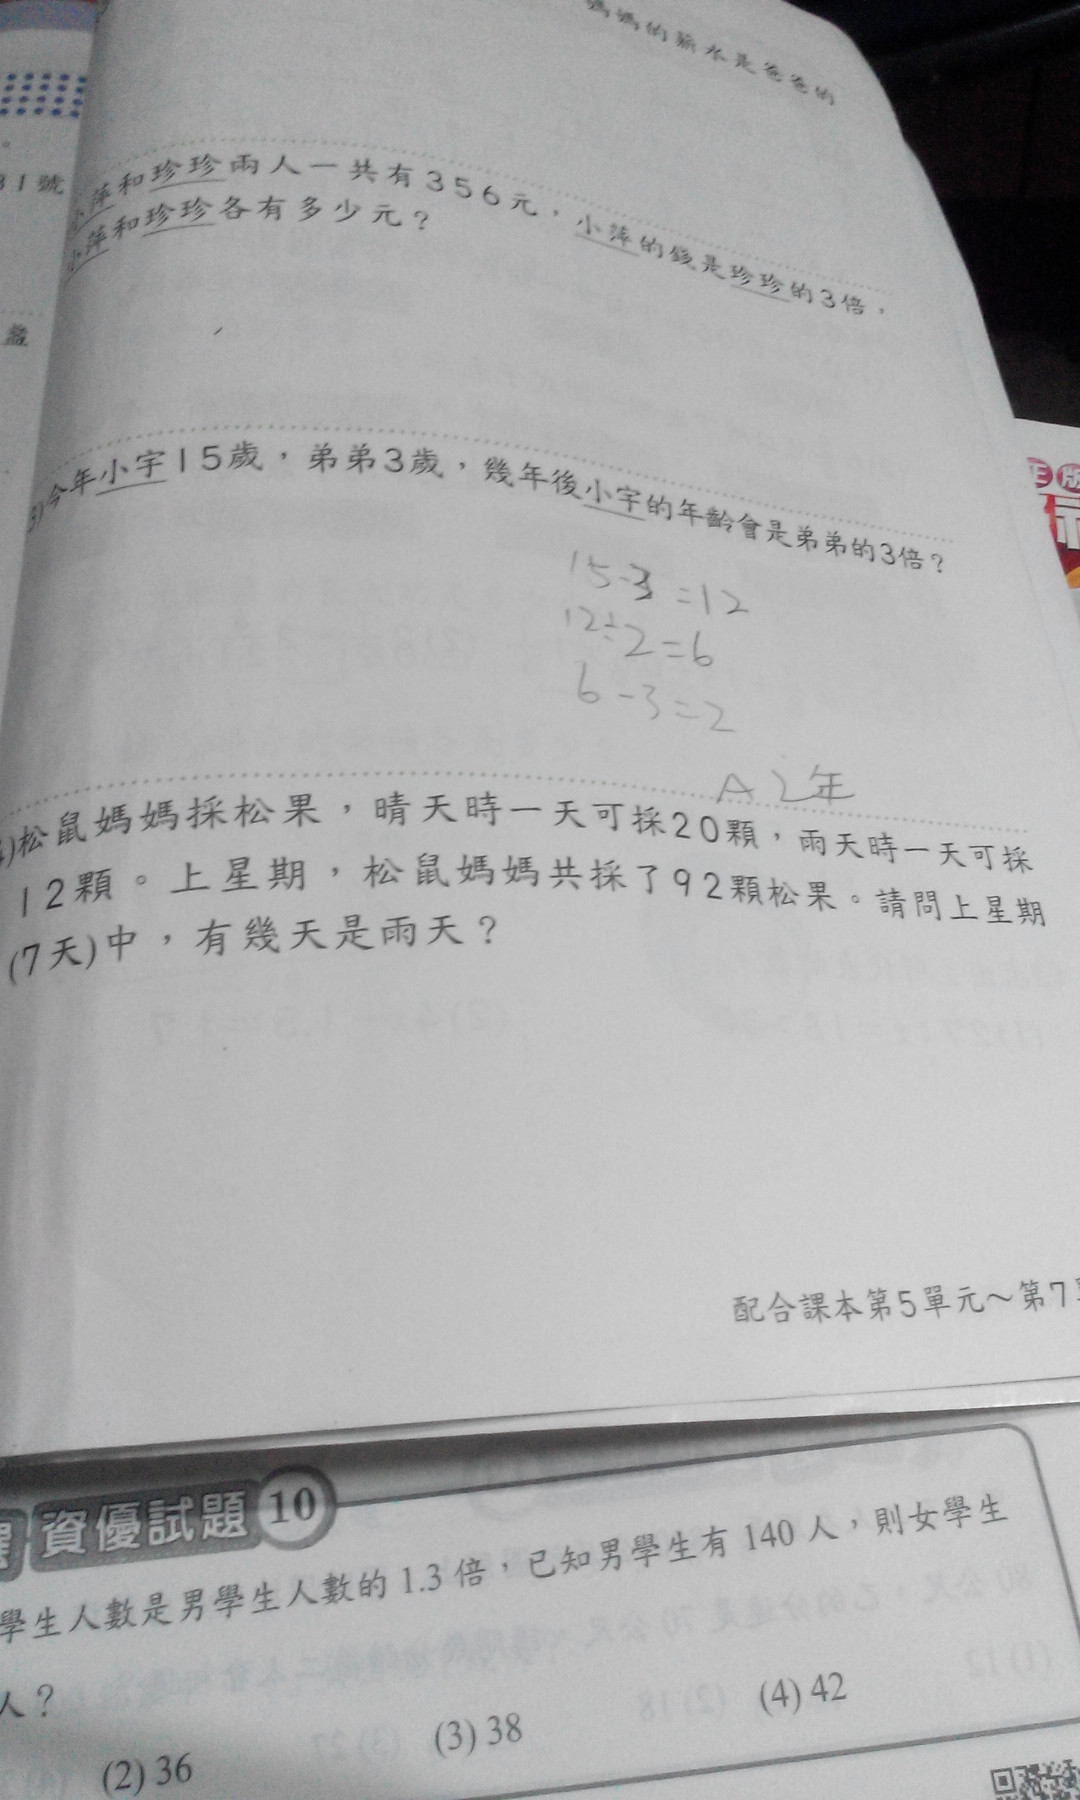 媽媽的薪水是爸爸的
31號
小萍和珍珍兩人一共有356元,小萍的錢是珍珍的3倍,
小萍和珍珍各有多少元?
3)今年小宇15歲,弟弟3歲,幾年後小宇的年齡會是弟弟的3倍?
15-3=12
12÷2=6
6-3=2
A 2年
)松鼠媽媽採松果,晴天時一天可採20顆,雨天時一天可採
12顆。上星期,松鼠媽媽共採了92顆松果。請問上星期
(7天)中,有幾天是雨天?
配合課本第5單元~第7
資優試題 10
學生人數是男學生人數的 1.3 倍,已知男學生有 140 人,則女學生
人?
(2) 36 (3) 38 (4) 42